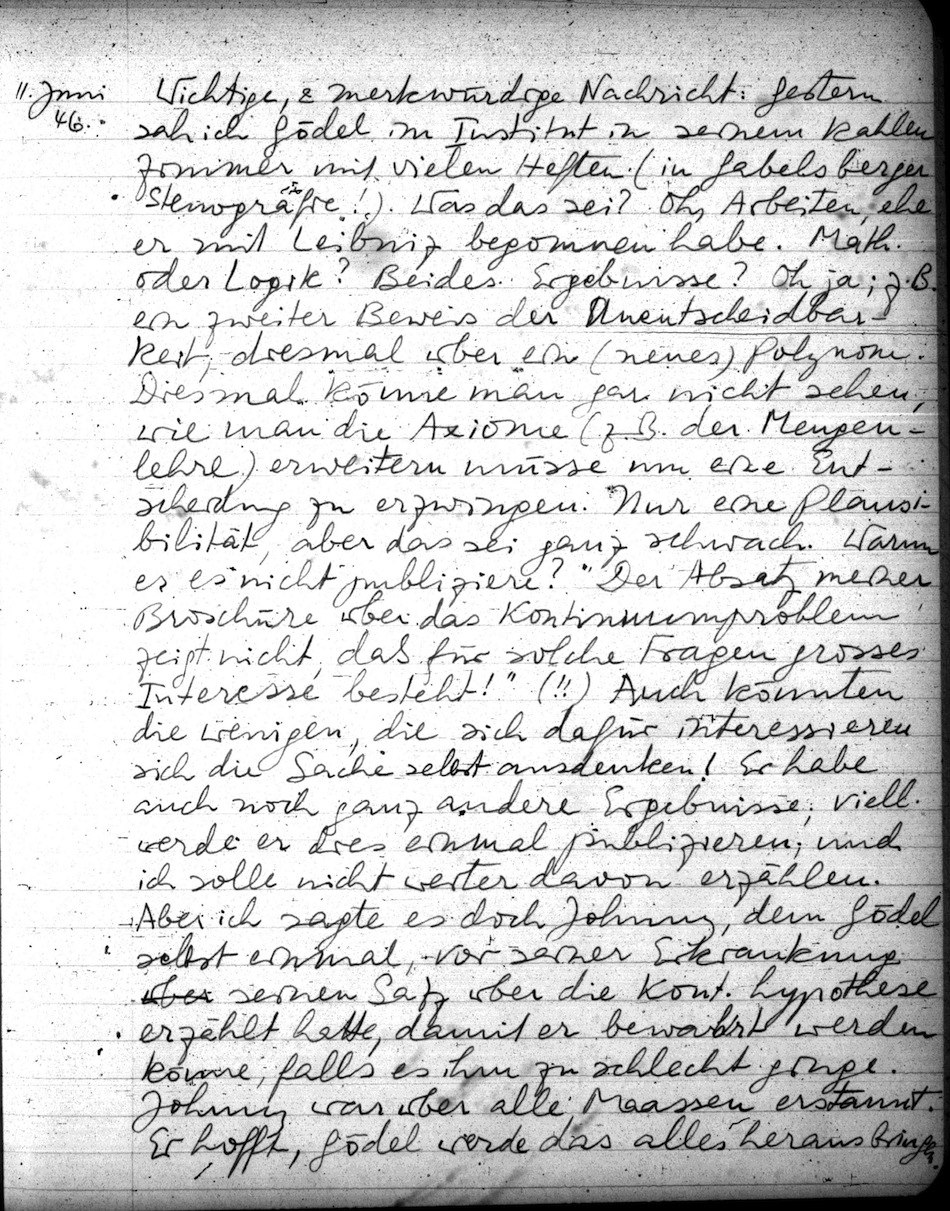 11. Juni Wichtige, & merkwürdige Nachricht: gestern
46. sah ich Gödel im Institut in seinem kahlen
Zimmer mit vielen Heften (in Gabelsberger
Stenografie!). Was das sei? Oh, Arbeiten, ehe
er mit Leibniz begonnen habe. Math.
oder Logik? Beides. Ergebnisse? Oh ja; z.B.
ein zweiter Beweis der Unentscheidbar-
keit, diesmal über ein (neues) Polynom.
Diesmal könne man gar nicht sehen,
wie man die Axiome (z.B. der Mengen-
lehre) erweitern müsse um eine Ent-
scheidung zu erzwingen. Nur eine Plausi-
bilität, aber das sei ganz schwach. Warum
er es nicht publiziere? "Der Absatz meiner
Broschüre über das Kontinuumproblem
zeigt nicht, daß für solche Fragen grosses
Interesse besteht!" (!!) Auch könnten
die wenigen, die sich dafür interessieren
sich die Sache selbst ausdenken! Er habe
auch noch ganz andere Ergebnisse; viell.
werde er dies einmal publizieren; und
ich solle nicht weiter davon erzählen.
Aber ich sagte es doch Johnny, dem Gödel
selbst einmal, vor seiner Erkrankung
über seinen Satz über die Kont. hypothese
erzählt hatte, damit er bewahrt werden
könne, falls es ihm zu schlecht ginge.
Johnny war über alle Maassen erstaunt.
Er hofft, Gödel werde das alles herausbringen.